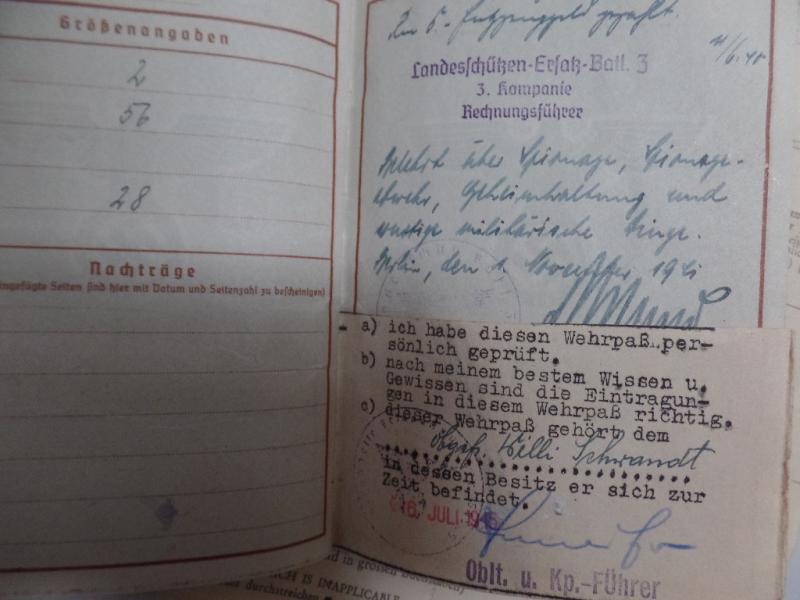 Größenangaben
2
56
28
Nachträge
ingefügte Seiten sind hier mit Datum und Seitenzahl zu bescheinigen)
gezahlt.
Landesschützen-Ersatz-Batl. 3
3. Kompanie
Rechnungsführer
Belehrt über Spionage, Spionage-
abwehr, Geheimhaltung und
sonstige militärische Dinge.
Berlin, den 1. November 1941
a) ich habe diesen Wehrpaß per-
sönlich geprüft.
b) nach meinem bestem Wissen u.
Gewissen sind die Eintragun-
gen in diesem Wehrpaß richtig.
c) dieser Wehrpaß gehört dem
Willi Schwandt
in dessen Besitz er sich zur
Zeit befindet.
16. JULI 1945
Oblt. u. Kp.-Führer
d in grossen
CH IS INAPPLICABLE
durchstreichen